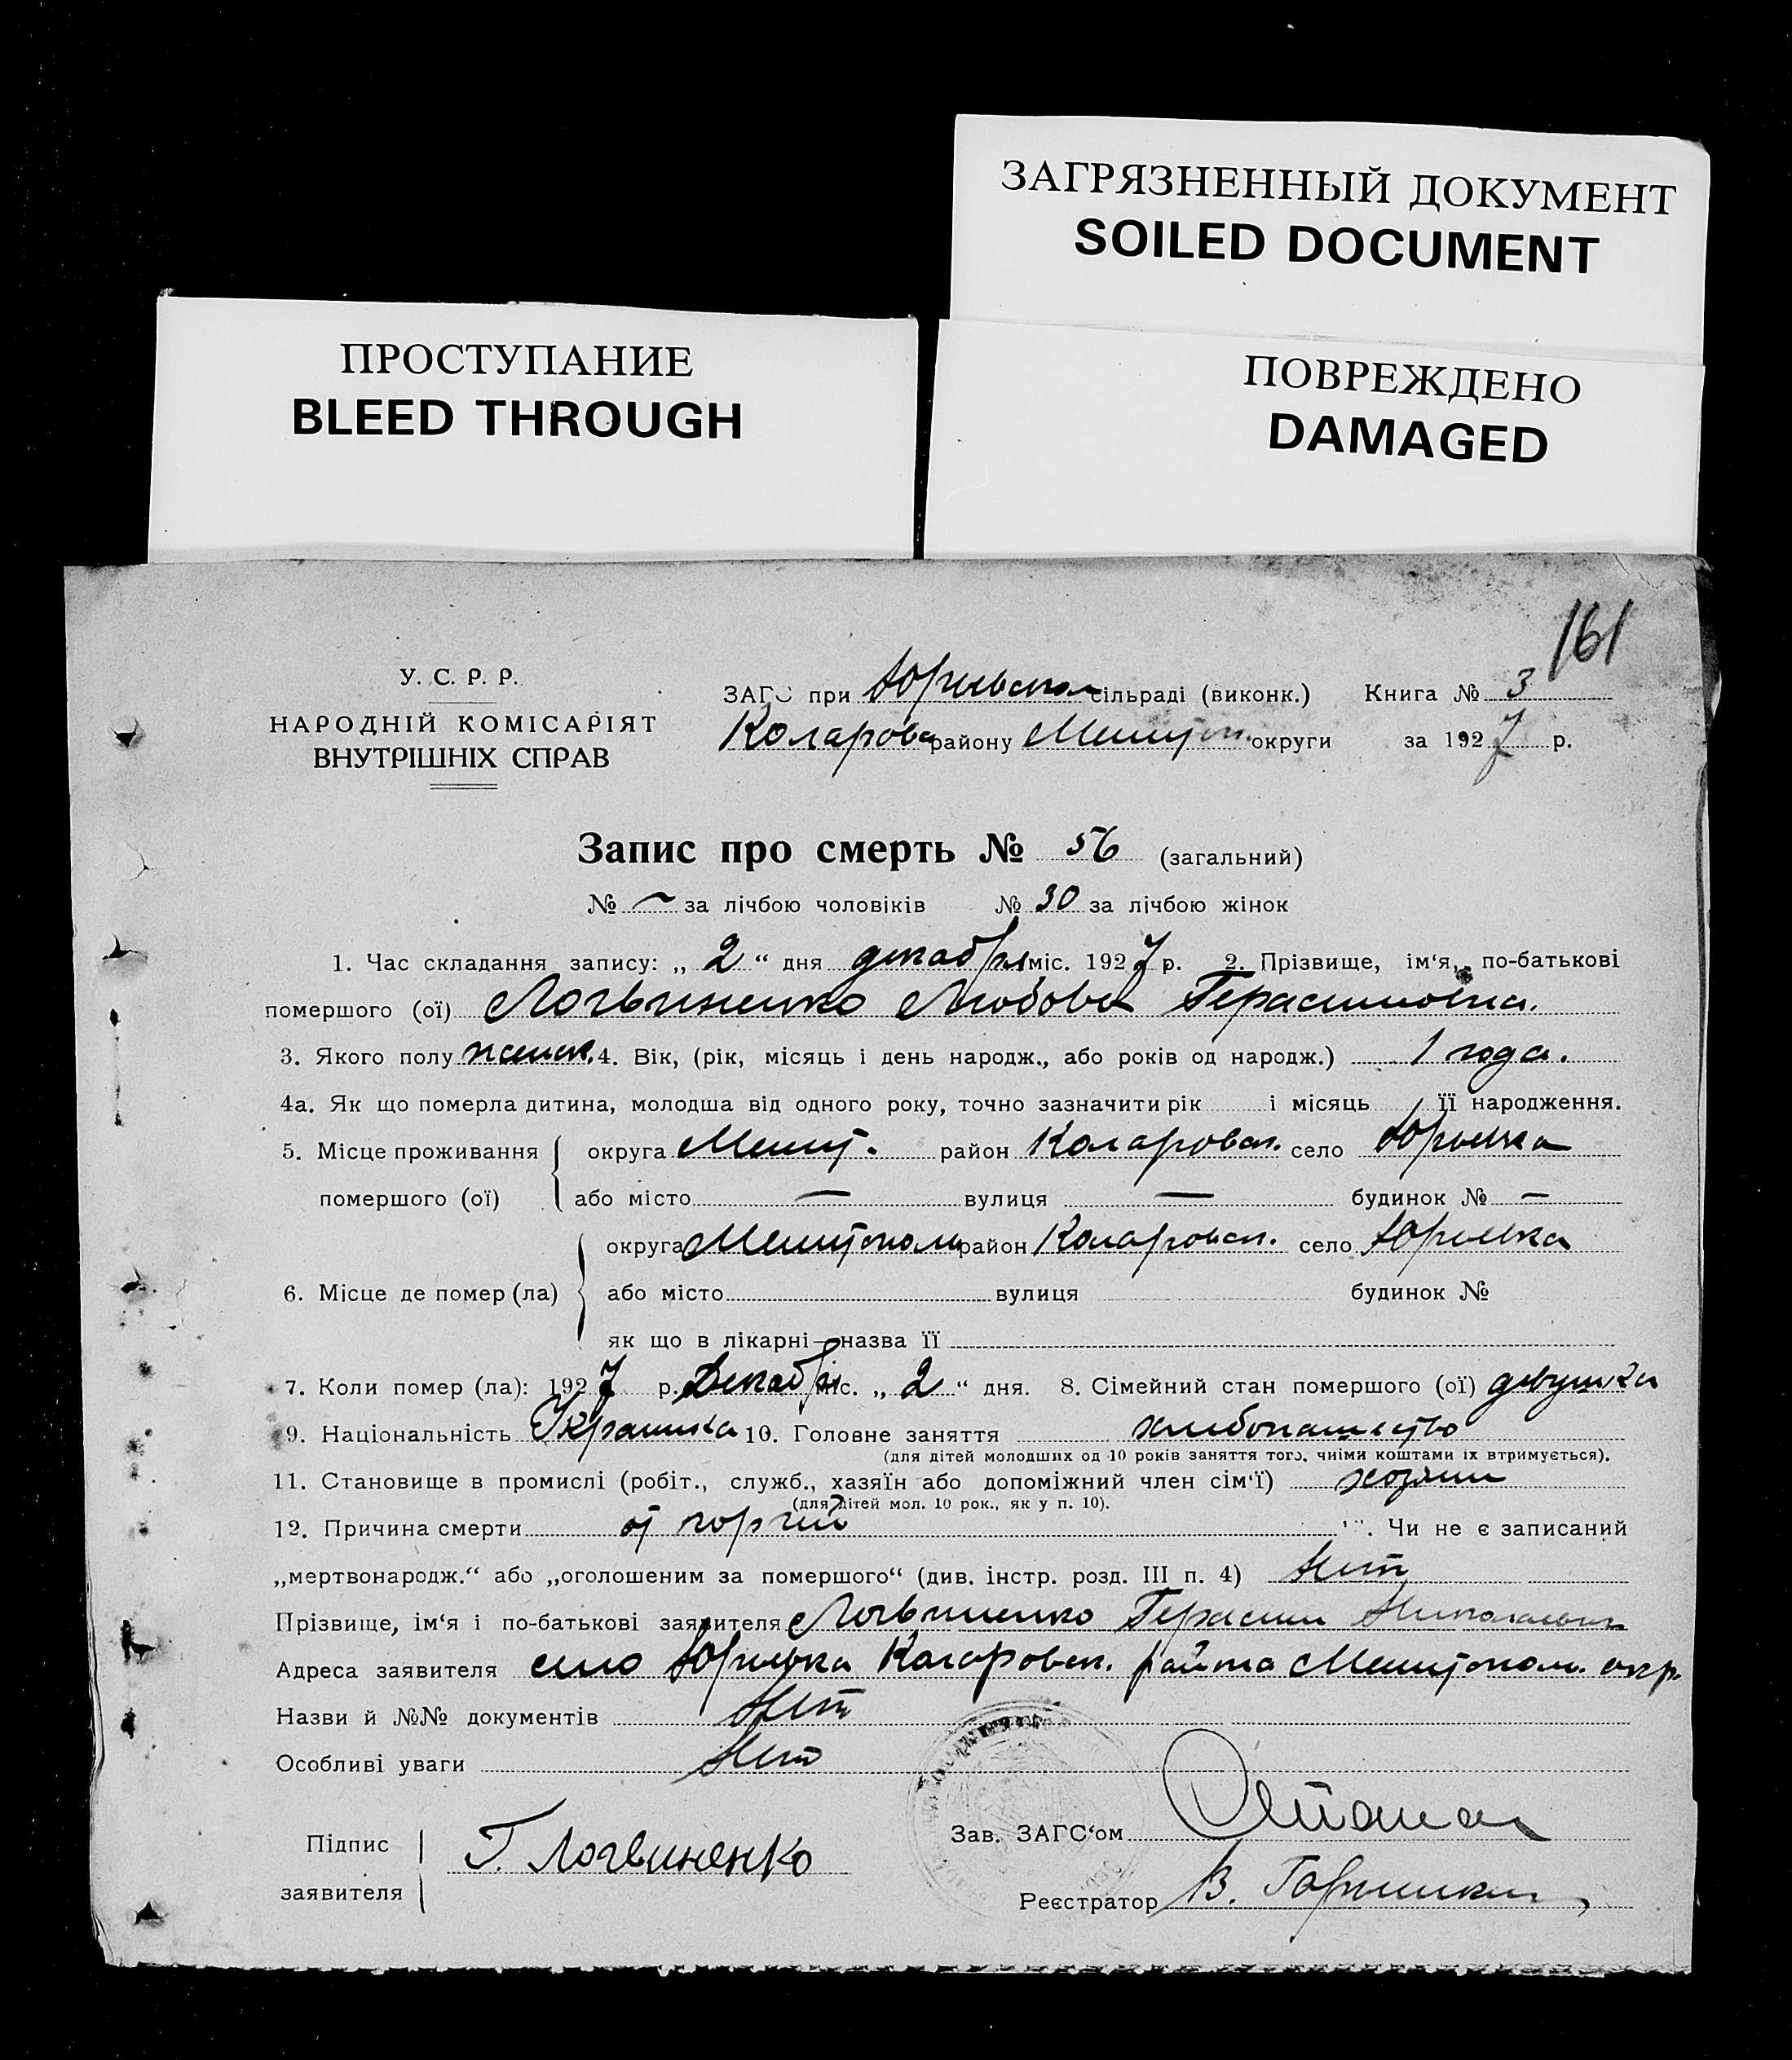 ЗАГРЯЗНЕННЫЙ ДОКУМЕНТ
SOILED DOCUMENT
ПРОСТУПАНИЕ
BLEED THROUGH
ПОВРЕЖДЕНО
DAMAGED
161
У. С. Р. Р.
НАРОДНІЙ КОМІСАРІЯТ
ВНУТРІШНІХ СПРАВ
ЗАГС при Юрьевском сільраді (виконк.) Книга № 3
Коларовс району Мелитоп. округи за 1927 р.
Запис про смерть № 56 (загальний)
№ — за лічбою чоловіків № 30 за лічбою жінок
1. Час складання запису: „ 2 “ дня декабря міс. 1927 р. 2. Прізвище, ім‘я, по-батькові
помершого (ої) Логвиненко Любовь Герасимовна.
3. Якого полу женск. 4. Вік, (рік, місяць і день народж., або років од народж.) 1 года.
4а. Як що померла дитина, молодша від одного року, точно зазначити рік і місяць її народження.
5. Місце проживання округа Мелит. район Коларовск. село Юрьевка
помершого (ої) або місто — вулиця — будинок № —
округа Мелитопол район Коларовск. село Юрьевка
6. Місце де помер (ла) або місто вулиця будинок №
як що в лікарні—назва її
7. Коли помер (ла): 1927 р. Декабр міс. „ 2 “ дня. 8. Сімейний стан помершого (ої) девушка
9. Національність Украинка 10. Головне заняття хлебопашество
(для дітей молодших од 10 років заняття того, чиїми коштами їх втримується).
11. Становище в промислі (робіт., служб., хазяїн або допоміжний член сім‘ї) хозяин
(для дітей мол. 10 рок., як у п. 10).
12. Причина смерти от . Чи не є записаний
„мертвонародж.“ або „оголошеним за помершого“ (див. інстр. розд. III п. 4) Нет
Прізвище, ім‘я і по-батькові заявителя Логвиненко Герасим Николаевич
Адреса заявителя село Юрьевка Коларовск. района Мелитопол. окр.
Назви й №№ документів Нет
Особливі уваги Нет
Підпис
заявителя Г. Логвиненко
Зав. ЗАГС‘ом
Реєстратор В.